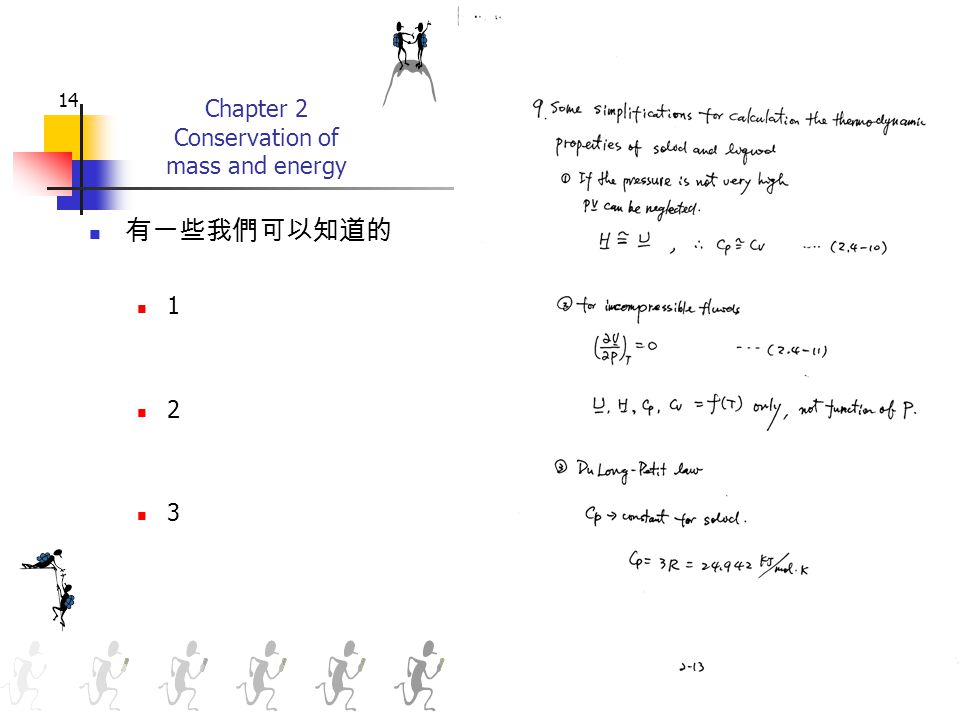 14
Chapter 2
Conservation of
mass and energy
有一些我們可以知道的
1
2
3
9. Some simplifications for calculation the thermodynamic
properties of solod and liguod
① If the pressure is not very high
PV can be neglected.
H ≅ U , ∴ Cp ≅ Cv ···· (2.4-10)
② for incompressible fluids
(∂U/∂P)T = 0 --- (2.4-11)
U, H, Cp, Cv = f(T) only, not function of P.
③ DuLong-Petit law
Cp → constant for solod.
Cp = 3R = 24.942 KJ/mol·K
2-13